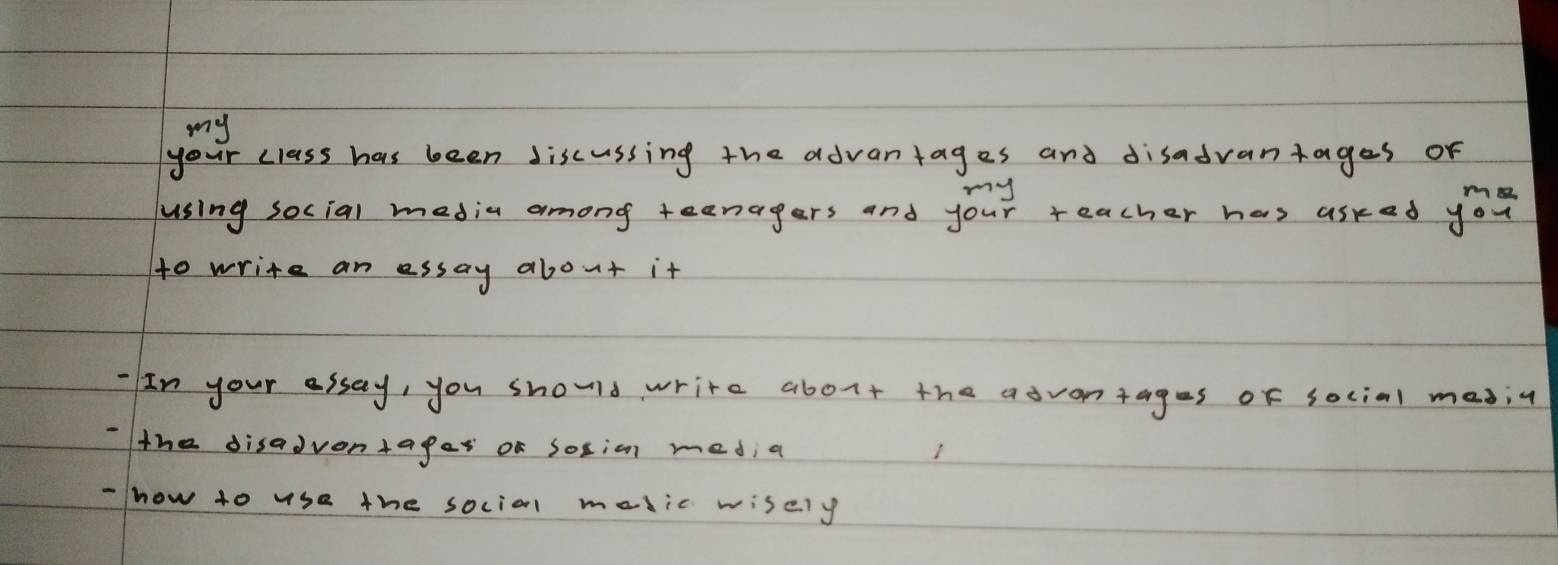 my
your class has been discussing the advantages and disadvantages of
my me
using social media among teenagers and your teacher has asked you
to write an essay about it
- In your essay, you should write about the advantages of social media
- the disadvantages of sosial media
- how to use the social media wisely